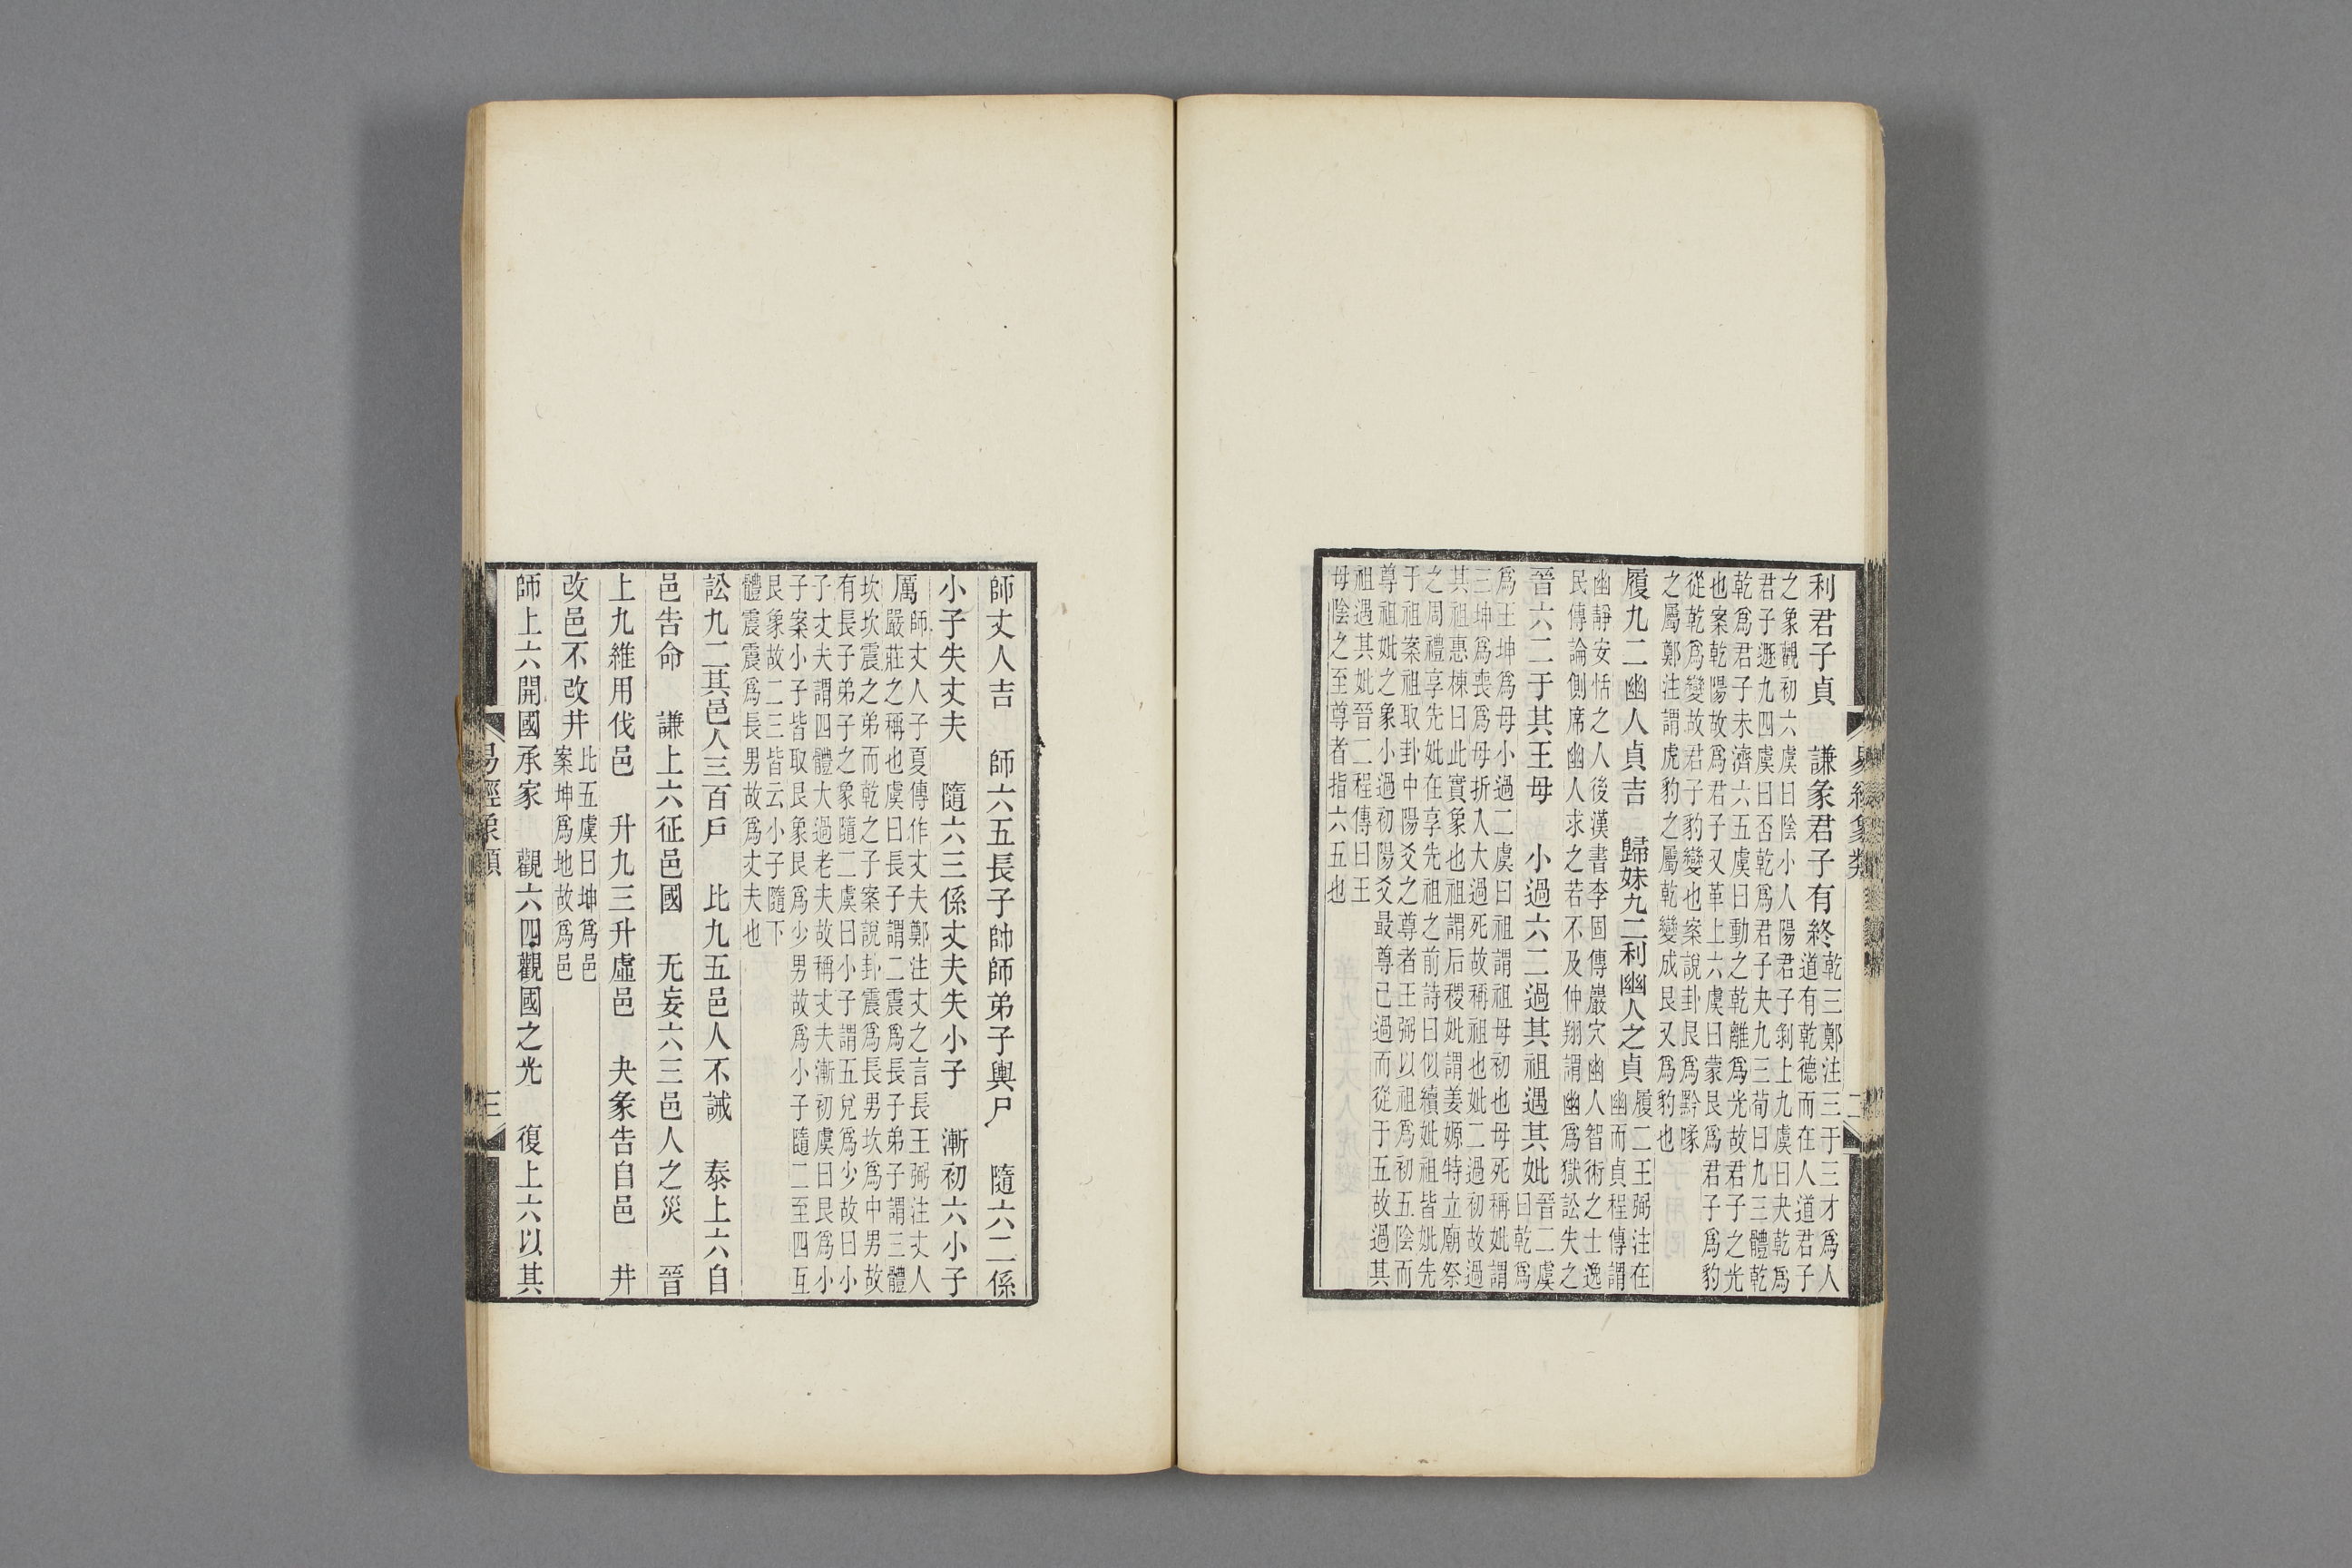 易經象類
二
利君子貞　謙彖君子有終
乾三鄭注三于三才爲人
道有乾德而在人道君子
之象觀初六虞曰陰小人陽君子剝上九虞曰夬乾爲
君子遯九四虞曰否乾爲君子夬九三荀曰九三體乾
乾爲君子未濟六五虞曰動之乾離爲光故君子之光
也案乾陽故爲君子又革上六虞曰蒙艮爲君子爲豹
從乾爲變故君子豹變也案說卦艮爲黔喙
之屬鄭注謂虎豹之屬乾變成艮又爲豹也
履九二幽人貞吉　歸妹九二利幽人之貞
履二王弼注在
幽而貞程傳謂
幽靜安恬之人後漢書李固傳巖穴幽人智術之士逸
民傳論側席幽人求之若不及仲翔謂幽爲獄訟失之
晉六二于其王母　小過六二過其祖遇其妣
晉二虞
曰乾爲
爲王坤爲母小過二虞曰祖謂祖母初也母死稱妣謂
三坤爲喪爲母折入大過死故稱祖也妣二過初故過
其祖惠棟曰此實象也祖謂后稷妣謂姜嫄特立廟祭
之周禮享先妣在享先祖之前詩曰似續妣祖皆妣先
于祖案祖取卦中陽爻之尊者王弼以祖爲初五陰而
尊祖妣之象小過初陽爻最尊已過而從于五故過其
祖遇其妣晉二程傳曰王
母陰之至尊者指六五也
師丈人吉　師六五長子帥師弟子輿尸　隨六二係
小子失丈夫　隨六三係丈夫失小子　漸初六小子
厲
師丈人子夏傳作丈夫鄭注丈之言長王弼注丈人
嚴莊之稱也虞曰長子謂二震爲長子弟子謂三體
坎坎震之弟而乾之子案說卦震爲長男坎爲中男故
有長子弟子之象隨二虞曰小子謂五兌爲少故曰小
子丈夫謂四體大過老夫故稱丈夫漸初虞曰艮爲小
子案小子皆取艮象艮爲少男故爲小子隨二至四互
艮象故二三皆云小子隨下
體震震爲長男故爲丈夫也
訟九二其邑人三百戶　比九五邑人不誡　泰上六自
邑告命　謙上六征邑國　无妄六三邑人之災　晉
上九維用伐邑　升九三升虛邑　夬彖告自邑　井
改邑不改井
比五虞曰坤爲邑
案坤爲地故爲邑
師上六開國承家　觀六四觀國之光　復上六以其
易經象類
三